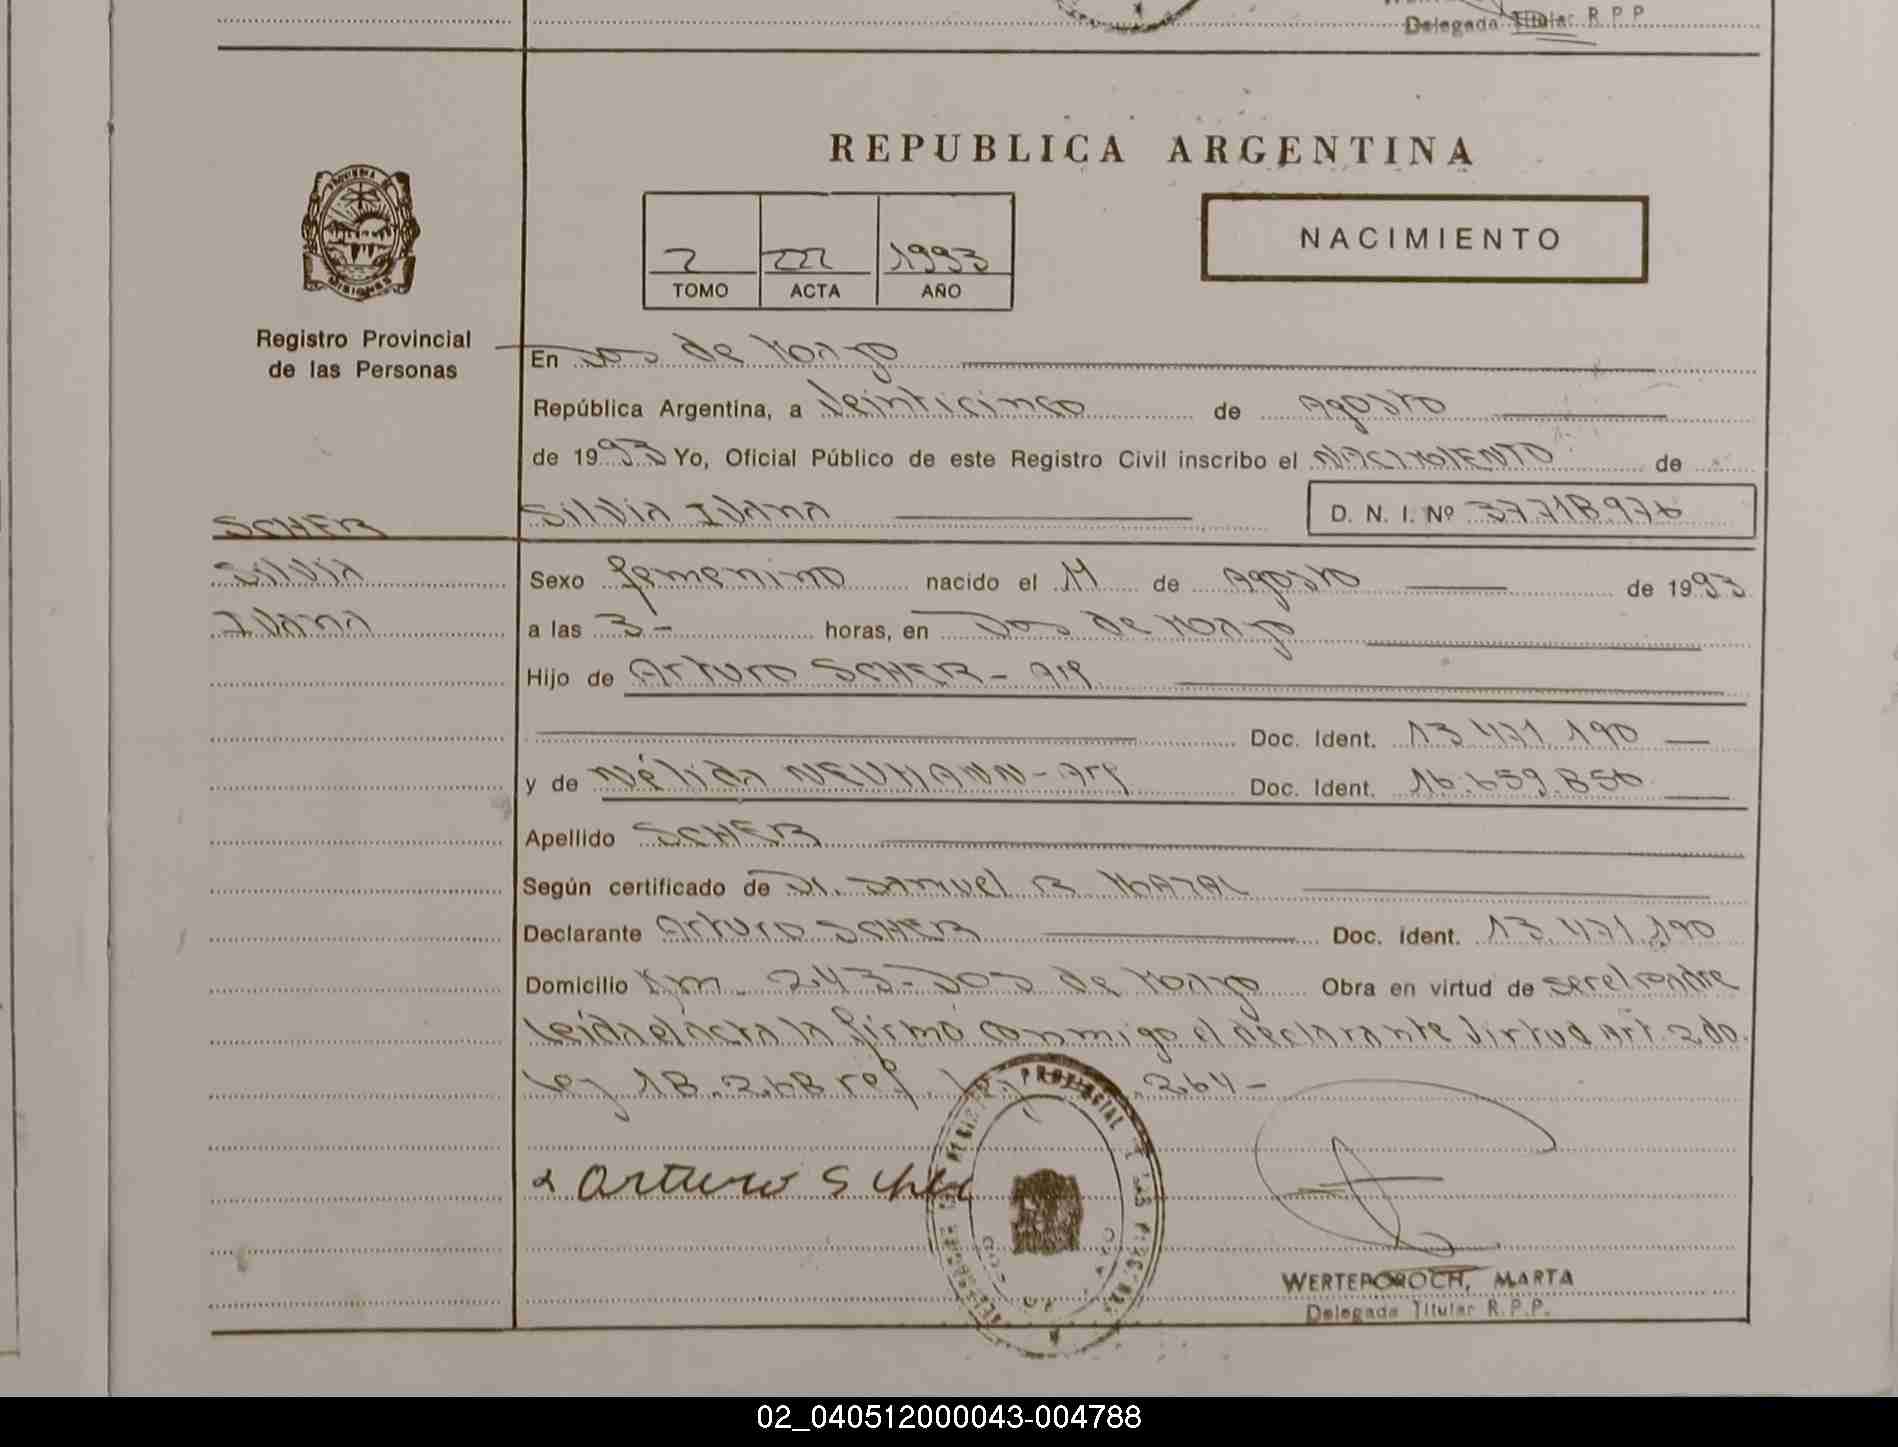 Delegada Titular R.P.P.
REPUBLICA ARGENTINA
PROVINCIA DE
MISIONES
NACIMIENTO
2 222 1993
TOMO ACTA AÑO
Registro Provincial
de las Personas
En Dos de Mayo
República Argentina, a Veinticinco de Agosto
de 1993 Yo, Oficial Público de este Registro Civil inscribo el NACIMIENTO de
SCHER Silvia Ivana D. N. I. Nº 37.718.976
Silvia Sexo femenino nacido el 11 de Agosto de 1993
Ivana a las 3- horas, en Dos de Mayo
Hijo de Arturo SCHER - Arg
Doc. Ident. 13.471.190
y de Nélida NEUMANN - Arg Doc. Ident. 16.659.856
Apellido SCHER
Según certificado de Dr. Samuel
Declarante Arturo SCHER Doc. ident. 13.471.190
Domicilio Km. 243 - Dos de Mayo Obra en virtud de ser el padre
Leída el acta la firmó conmigo el declarante Virtud Art. 2do.
Ley 18.268 ref. 264-
Arturo Scher
REGISTRO PROVINCIAL DE LAS PERSONAS
WERTEPOROCH, MARTA
Delegada Titular R.P.P.
02_040512000043-004788